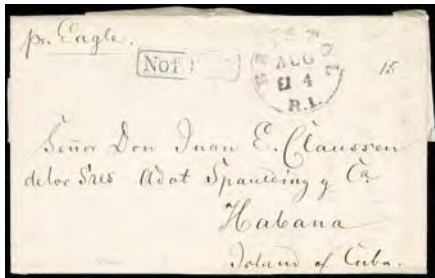 pr. Eagle.
Not
AUG
4
R.I.
15
Señor Don Juan E. Claussen
de los Sres Adot Spaulding y Ca
Habana
Island of Cuba.